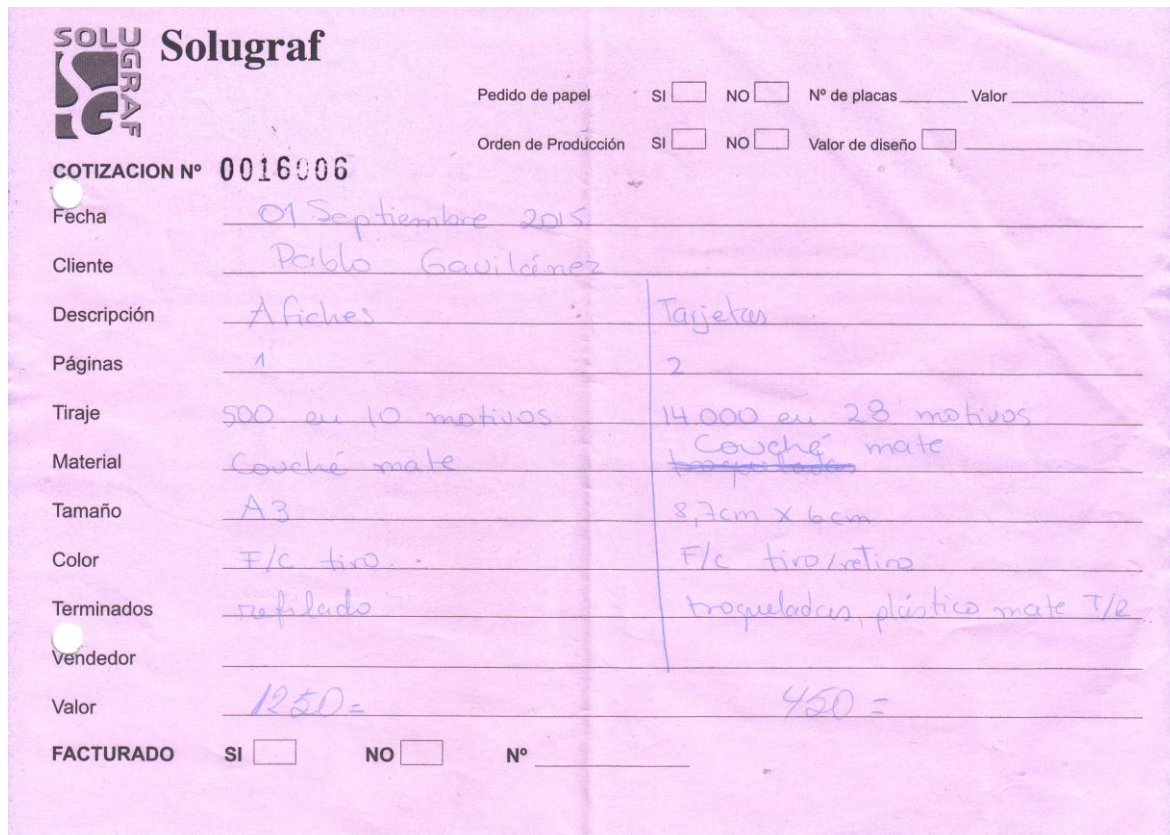 SOLUGRAF Solugraf
Pedido de papel SI NO Nº de placas Valor
Orden de Producción SI NO Valor de diseño
COTIZACION Nº 0016006
Fecha 01 Septiembre 2015
Cliente Pablo Gavilánez
Descripción Afiches Tarjetas
Páginas 1 2
Tiraje 500 en 10 motivos 14.000 en 28 motivos
Material Couché mate Couché mate
Tamaño A3 8,7cm x 6cm
Color F/C tiro F/C tiro/retiro
Terminados refilado troqueladas, plástico mate T/R
Vendedor
Valor 1250= 450=
FACTURADO SI NO Nº